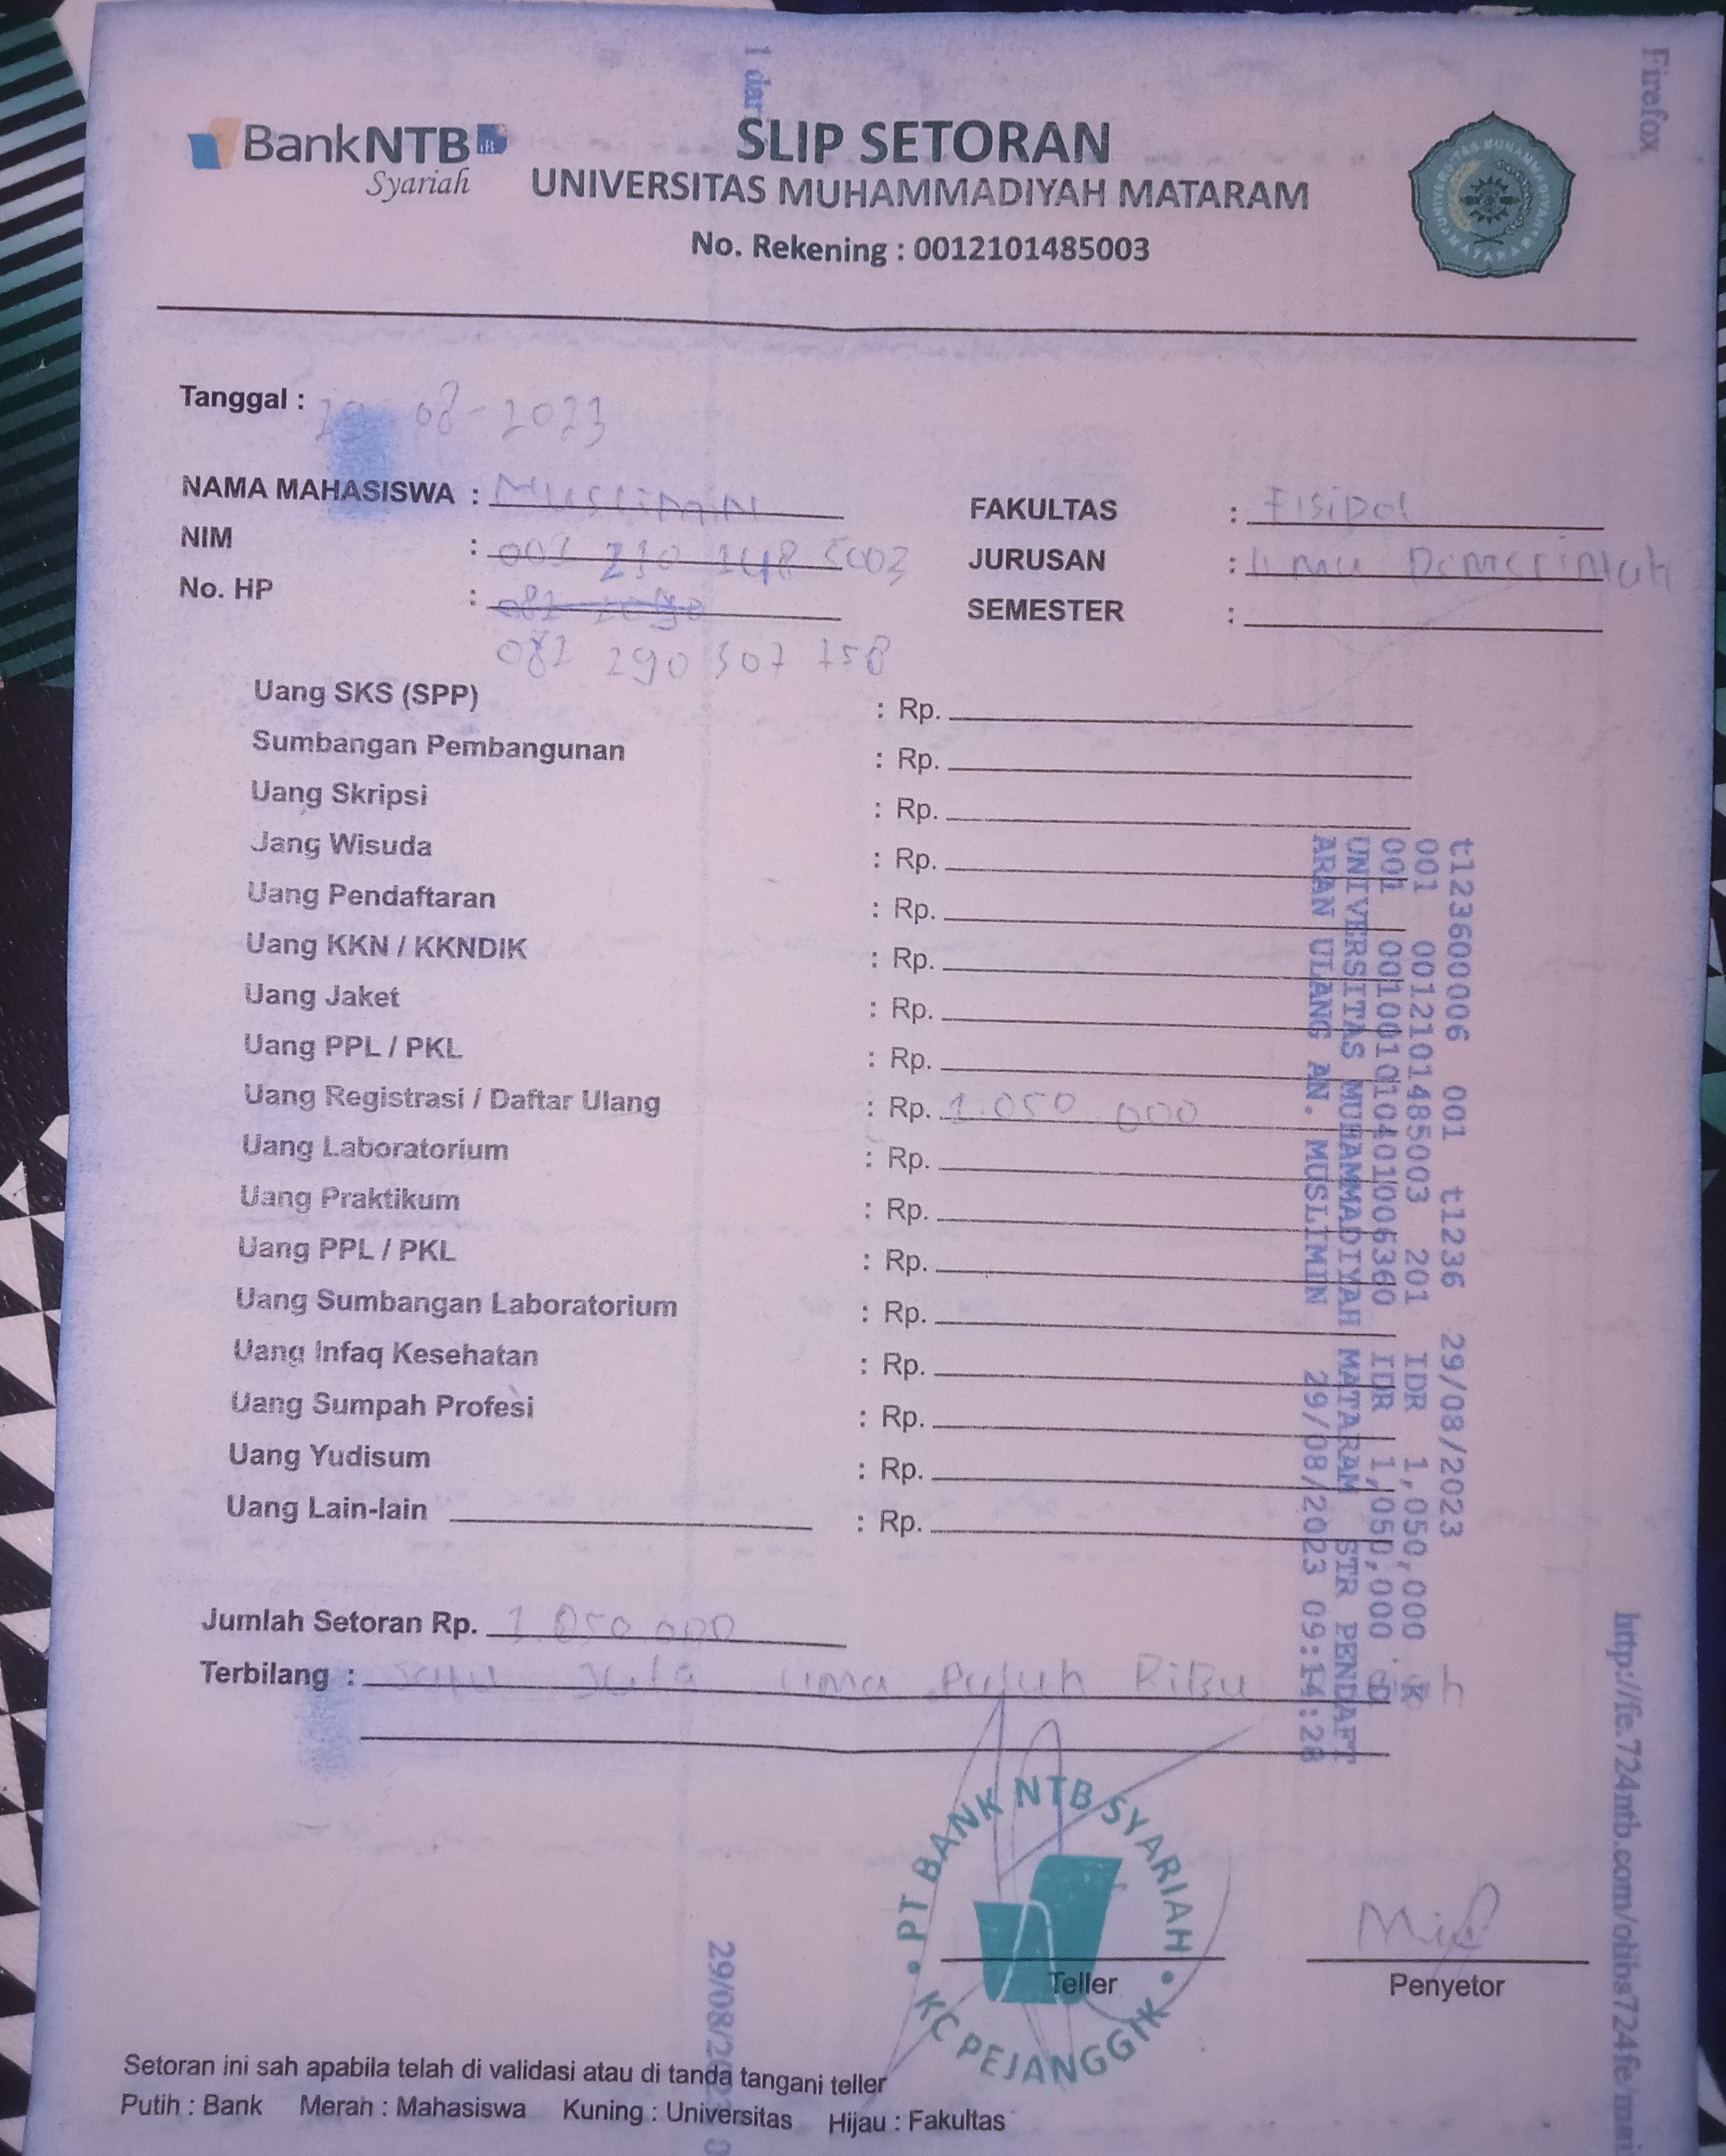 BankNTB
Syariah
SLIP SETORAN
UNIVERSITAS MUHAMMADIYAH MATARAM
No. Rekening : 0012101485003
Tanggal : 29 08-2023
NAMA MAHASISWA : MUSLIMIN
NIM : 001 210 148 5003
No. HP :
082 290 307 758
FAKULTAS : Fisipol
JURUSAN : Ilmu Pemerintah
SEMESTER :
Uang SKS (SPP) : Rp.
Sumbangan Pembangunan : Rp.
Uang Skripsi : Rp.
Uang Wisuda : Rp.
Uang Pendaftaran : Rp.
Uang KKN / KKNDIK : Rp.
Uang Jaket : Rp.
Uang PPL / PKL : Rp.
Uang Registrasi / Daftar Ulang : Rp. 1.050.000
Uang Laboratorium : Rp.
Uang Praktikum : Rp.
Uang PPL / PKL : Rp.
Uang Sumbangan Laboratorium : Rp.
Uang Infaq Kesehatan : Rp.
Uang Sumpah Profesi : Rp.
Uang Yudisum : Rp.
Uang Lain-lain : Rp.
Jumlah Setoran Rp. 1.050.000
Terbilang : Satu Juta Lima Puluh Ribu
t123600006 001 t1236 29/08/2023
001 0012101485003 201 IDR 1,050,000 K
001 001001010401006360 IDR 1,050,000 D
UNIVERSITAS MUHAMMADIYAH MATARAM STR PENDAFT
ARAN ULANG AN. MUSLIMIN 29/08/2023 09:14:28
PT BANK NTB SYARIAH
KC PEJANGGIK
Teller
Penyetor
Setoran ini sah apabila telah di validasi atau di tanda tangani teller
Putih : Bank Merah : Mahasiswa Kuning : Universitas Hijau : Fakultas
Firefox
1 dari
http://fe.724ntb.com/olibs724fe/
29/08/2023
UNIVERSITAS MUHAMMADIYAH MATARAM